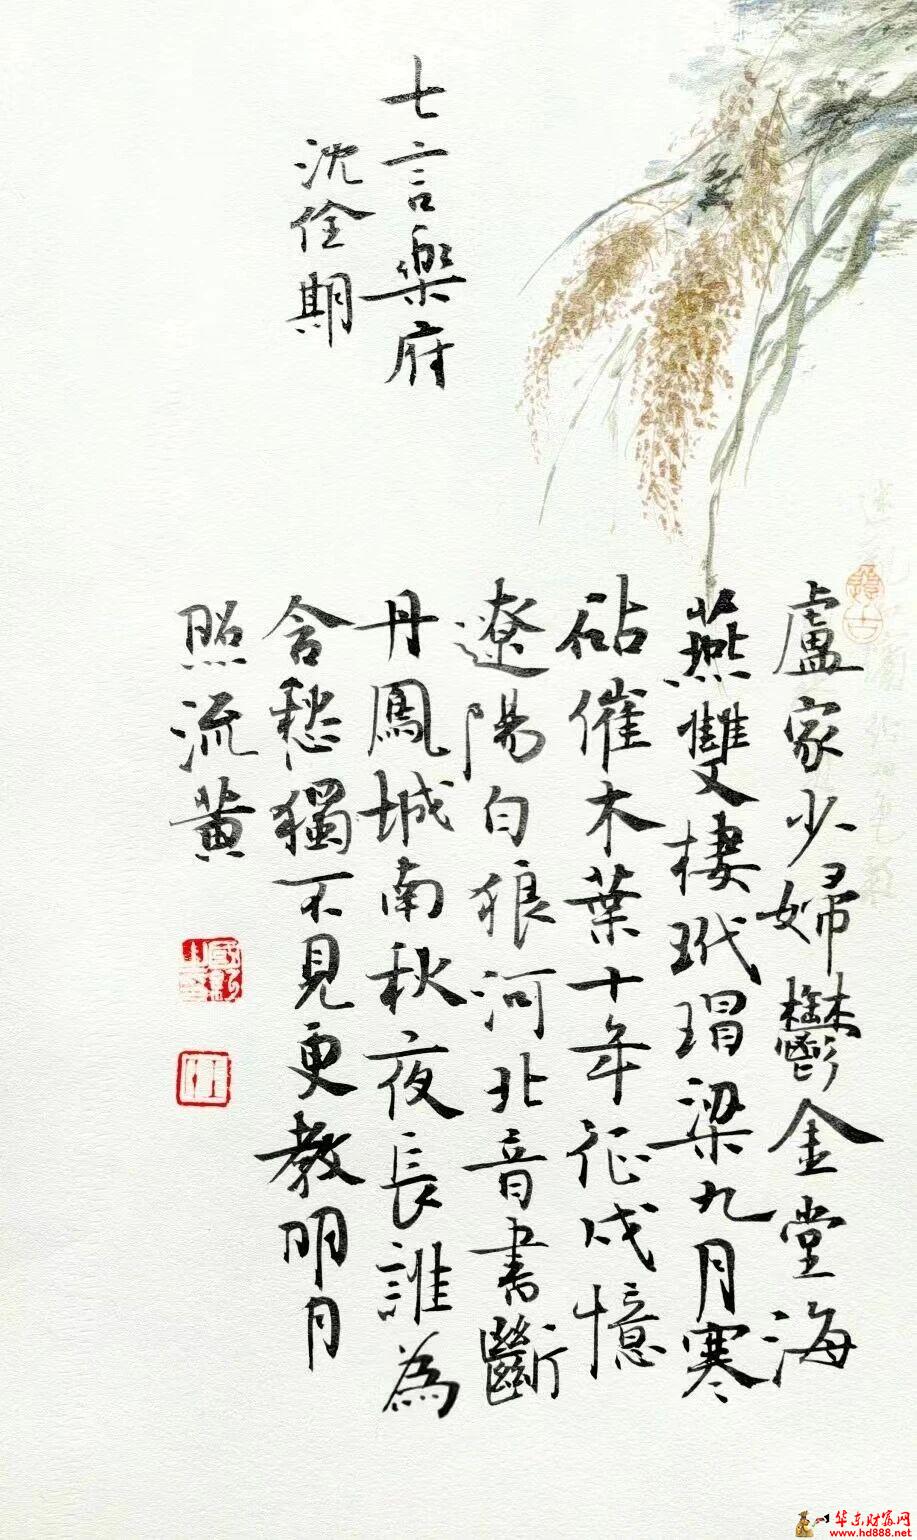 七言樂府
沈佺期
盧家少婦鬱金堂海
燕雙棲玳瑁梁九月寒
砧催木葉十年征戍憶
遼陽白狼河北音書斷
丹鳳城南秋夜長誰為
含愁獨不見更教明月
照流黄
华东财富网
www.hd888.net